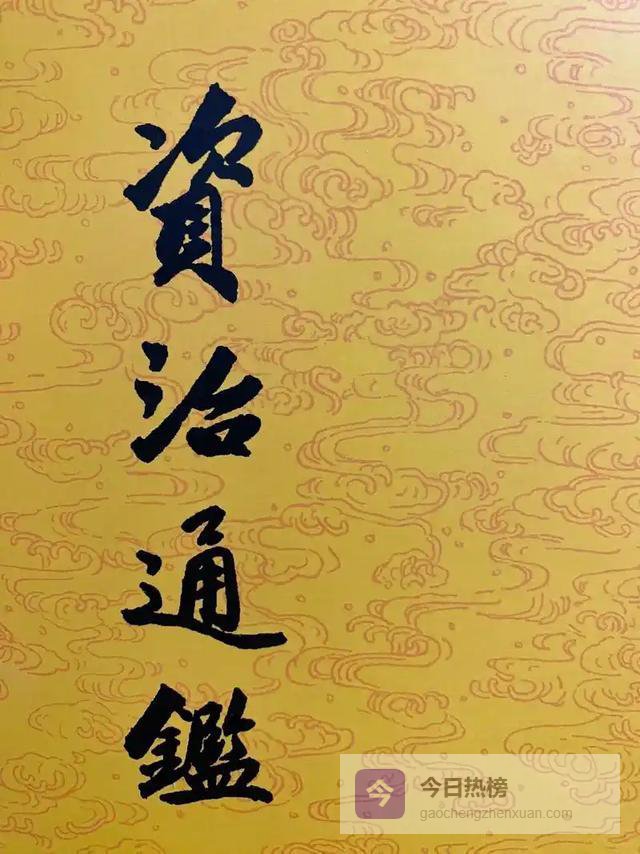 資治通鑑
今
今日热榜
gaochengzhenxuan.com